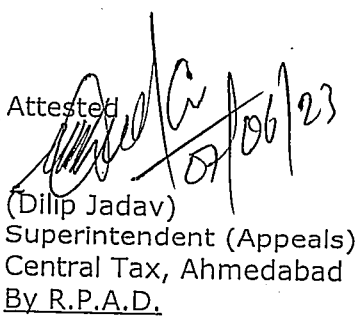 Attested
07/06/23
(Dilip Jadav)
Superintendent (Appeals)
Central Tax, Ahmedabad
By R.P.A.D.